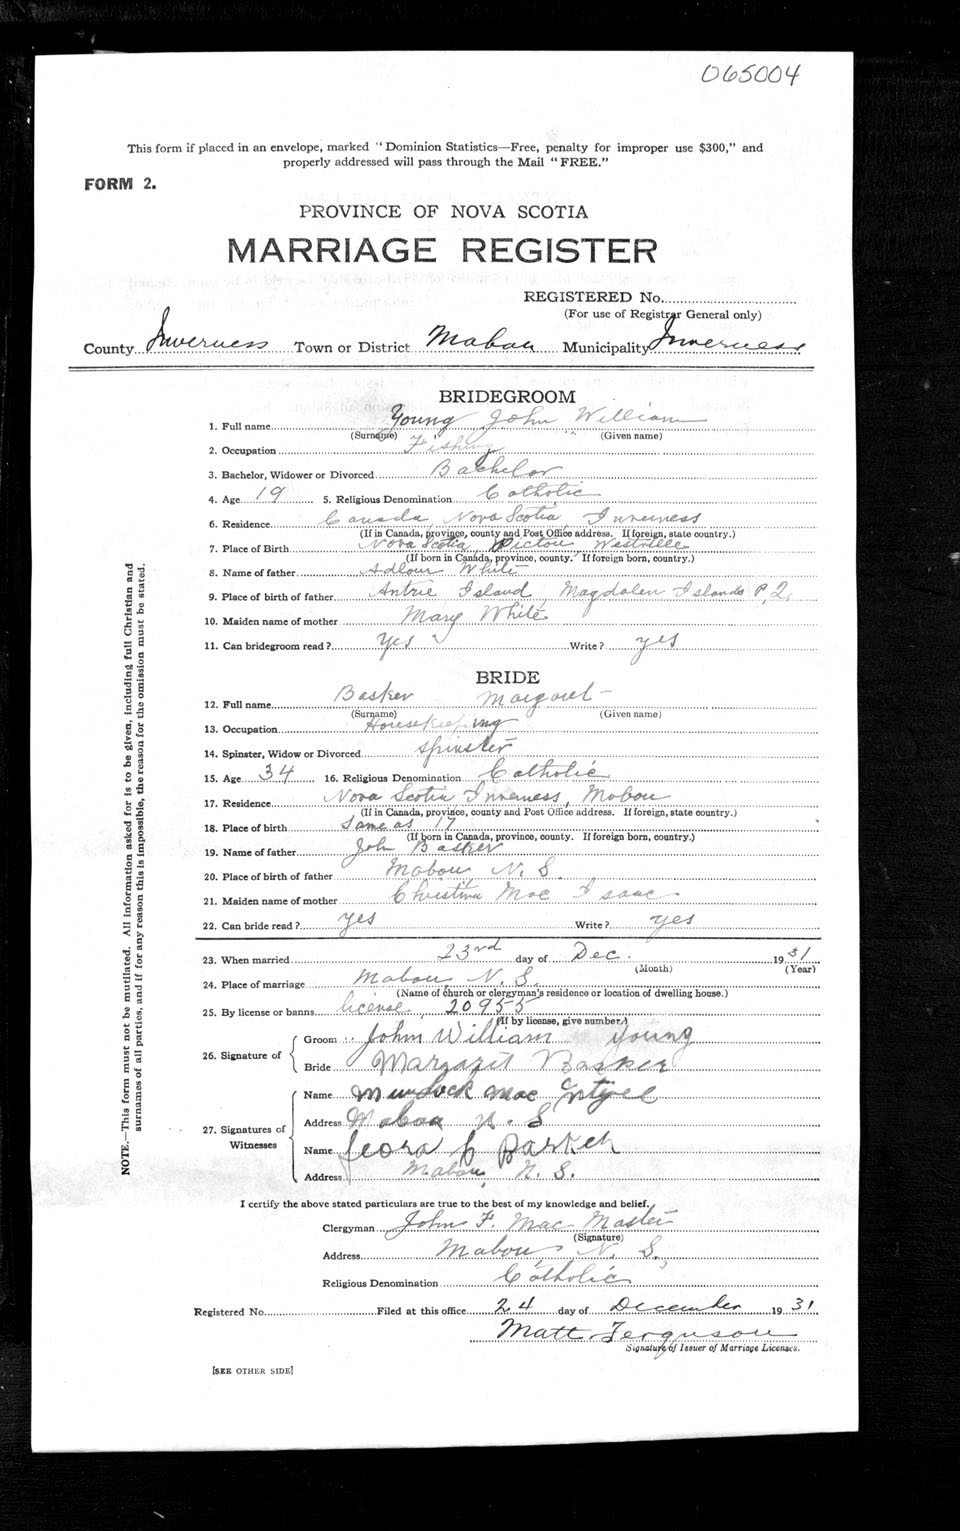 065004
This form if placed in an envelope, marked "Dominion Statistics—Free, penalty for improper use $300," and
properly addressed will pass through the Mail "FREE."
FORM 2.
PROVINCE OF NOVA SCOTIA
MARRIAGE REGISTER
REGISTERED No.
(For use of Registrar General only)
County Inverness Town or District Mabou Municipality Inverness
BRIDEGROOM
1. Full name Young John William
(Surname) (Given name)
2. Occupation Fishing
3. Bachelor, Widower or Divorced Bachelor
4. Age 19 5. Religious Denomination Catholic
6. Residence Canada, Nova Scotia, Inverness
(If in Canada, province, county and Post Office address. If foreign, state country.)
7. Place of Birth Nova Scotia Pictou Westville
(If born in Canada, province, county. If foreign born, country.)
8. Name of father White
9. Place of birth of father Island, Magdalen Islands P.Q.
10. Maiden name of mother Mary White
11. Can bridegroom read? Yes Write? yes
BRIDE
12. Full name Basker Margaret
(Surname) (Given name)
13. Occupation Housekeeping
14. Spinster, Widow or Divorced Spinster
15. Age 34 16. Religious Denomination Catholic
17. Residence Nova Scotia Inverness, Mabou
(If in Canada, province, county and Post Office address. If foreign, state country.)
18. Place of birth Same as 17
(If born in Canada, province, county. If foreign born, country.)
19. Name of father John Basker
20. Place of birth of father Mabou N. S.
21. Maiden name of mother Christina Mac Isaac
22. Can bride read? yes Write? yes
23. When married 23rd day of Dec. 1931
(Month) (Year)
24. Place of marriage Mabou, N. S.
(Name of church or clergyman's residence or location of dwelling house.)
25. By license or banns license, 20955
(If by license, give number.)
26. Signature of
Groom John William Young
Bride Margaret Basker
27. Signatures of Witnesses
Name Murdock Mac
Address Mabou N. S
Name
Address Mabou, N. S.
I certify the above stated particulars are true to the best of my knowledge and belief.
Clergyman John F. Mac Master
(Signature)
Address Mabou, N. S.
Religious Denomination Catholic
Registered No. Filed at this office 24 day of December 1931
Matt. Ferguson
Signature of Issuer of Marriage Licenses.
[SEE OTHER SIDE]
NOTE.—This form must not be mutilated. All information asked for is to be given, including full Christian and
surnames of all parties, and if for any reason this is impossible, the reason for the omission must be stated.